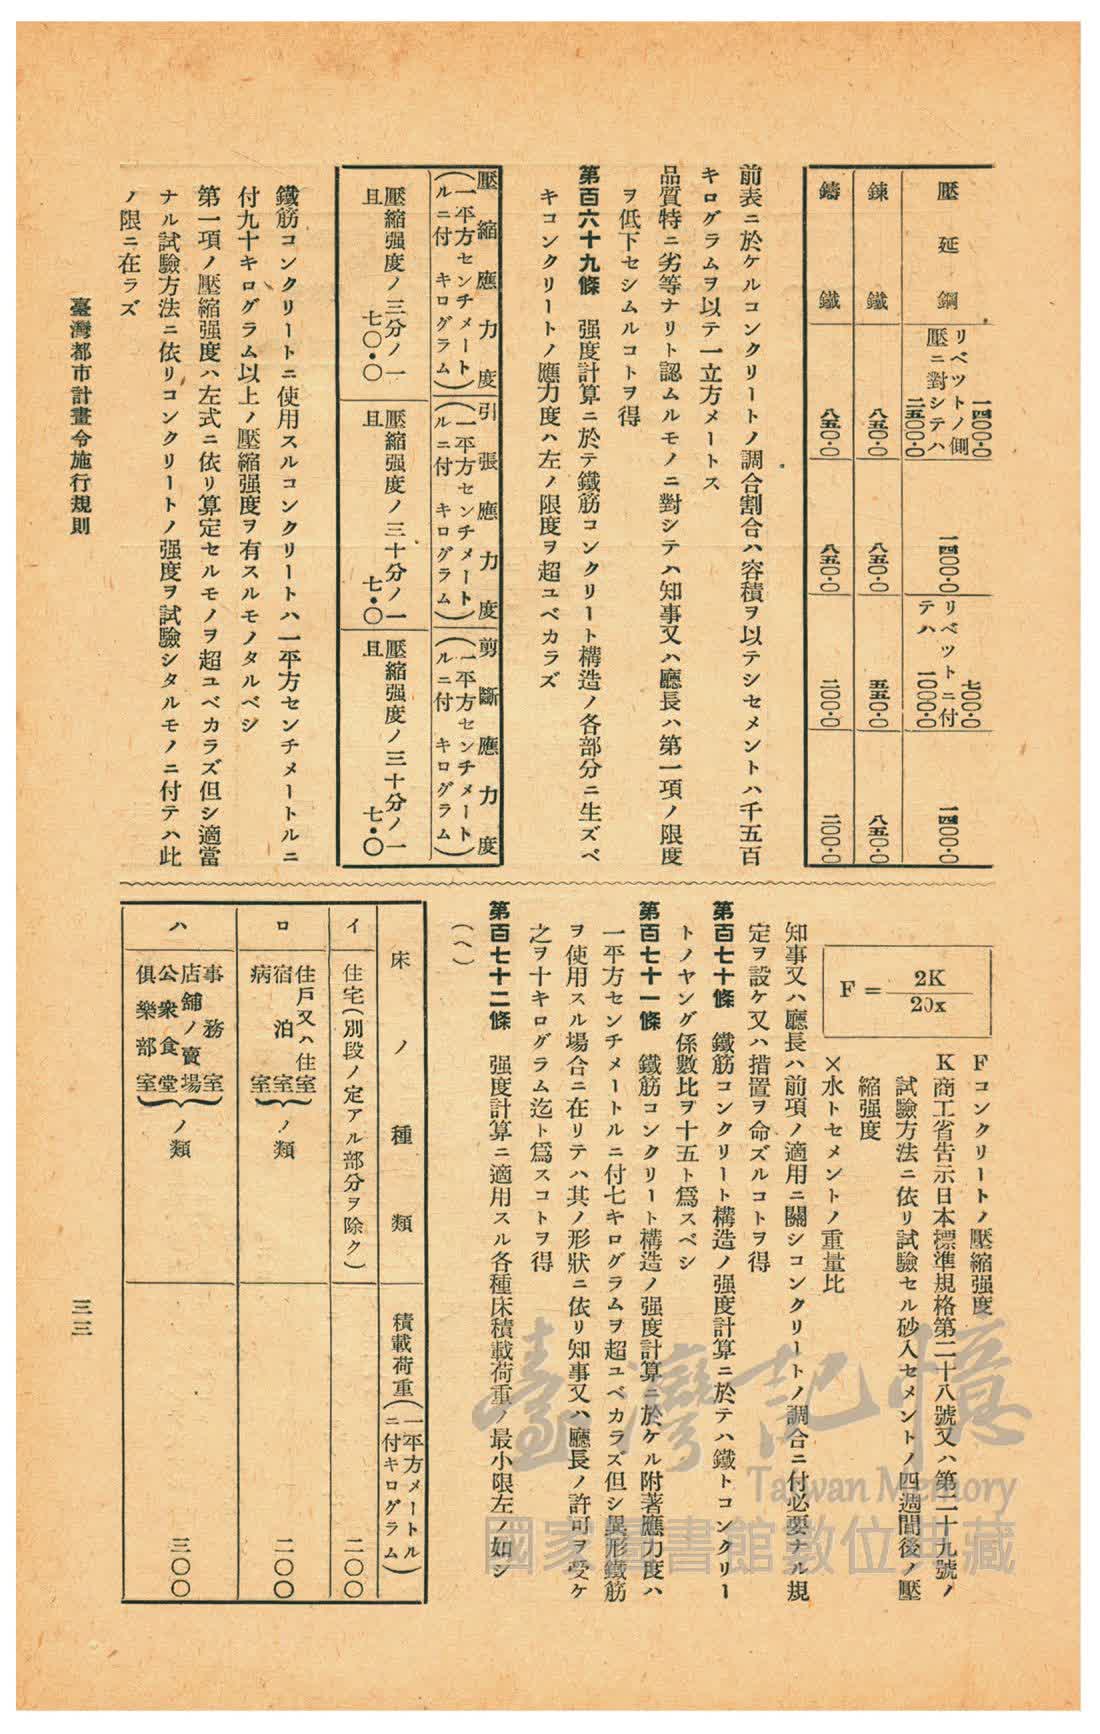 壓延鋼 一四〇〇・〇 リベットノ側壓ニ對シテハ 二五〇〇・〇 一四〇〇・〇 七〇〇・〇 リベットニ付テハ 一〇〇〇・〇 一四〇〇・〇
鍊鐵 八五〇・〇 八五〇・〇 五五〇・〇 八五〇・〇
鑄鐵 八五〇・〇 八五〇・〇 二〇〇・〇 二〇〇・〇
前表ニ於ケルコンクリートノ調合割合ハ容積ヲ以テシセメントハ千五百
キログラムヲ以テ一立方メートルトス
品質特ニ劣等ナリト認ムルモノニ對シテハ知事又ハ廳長ハ第一項ノ限度
ヲ低下セシムルコトヲ得
第百六十九條 强度計算ニ於テ鐵筋コンクリート構造ノ各部分ニ生ズベ
キコンクリートノ應力度ハ左ノ限度ヲ超ユベカラズ
壓縮應力度(一平方センチメートルニ付キログラム) 引張應力度(一平方センチメートルニ付キログラム) 剪斷應力度(一平方センチメートルニ付キログラム)
壓縮强度ノ三分ノ一 且 七〇・〇 壓縮强度ノ三十分ノ一 且 七・〇 壓縮强度ノ三十分ノ一 且 七・〇
鐵筋コンクリートニ使用スルコンクリートハ一平方センチメートルニ
付九十キログラム以上ノ壓縮强度ヲ有スルモノタルベシ
第一項ノ壓縮强度ハ左式ニ依リ算定セルモノヲ超ユベカラズ但シ適當
ナル試驗方法ニ依リコンクリートノ强度ヲ試驗シタルモノニ付テハ此
ノ限ニ在ラズ
臺灣都市計畫令施行規則
F = 2K / 20x
Fコンクリートノ壓縮强度
K商工省告示日本標準規格第二十八號又ハ第二十九號ノ
試驗方法ニ依リ試驗セル砂入セメントノ四週間後ノ壓
縮强度
×水トセメントノ重量比
知事又ハ廳長ハ前項ノ適用ニ關シコンクリートノ調合ニ付必要ナル規
定ヲ設ケ又ハ措置ヲ命ズルコトヲ得
第百七十條 鐵筋コンクリート構造ノ强度計算ニ於テハ鐵トコンクリー
トノヤング係數比ヲ十五ト爲スベシ
第百七十一條 鐵筋コンクリート構造ノ强度計算ニ於ケル附著應力度ハ
一平方センチメートルニ付七キログラムヲ超ユベカラズ但シ異形鐵筋
ヲ使用スル場合ニ在リテハ其ノ形狀ニ依リ知事又ハ廳長ノ許可ヲ受ケ
之ヲ十キログラム迄ト爲スコトヲ得
第百七十二條 强度計算ニ適用スル各種床積載荷重ノ最小限左ノ如シ
(へ)
床ノ種類 積載荷重(一平方メートルニ付キログラム)
イ 住宅(別段ノ定アル部分ヲ除ク) 二〇〇
ロ 住戶又ハ住室 宿泊室 病室 ノ類 二〇〇
ハ 事務室 店舖ノ賣場 公衆食堂 俱樂部室 ノ類 三〇〇
三三
臺灣記憶
Taiwan Memory
國家圖書館數位典藏